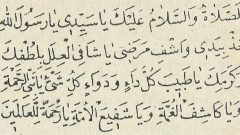 الصَّلَاةُ وَالسَّلَامُ عَلَيْكَ يَا سَيِّدِى يَا رَسُولَ اللهِ
خُذْ بِيَدِى وَاشْفِ مَرْضَى يَا شَافِىَ الْعِلَلِ بِلُطْفِكَ
كَرَمِكَ يَا طَبِيبَ كُلِّ دَاءٍ وَدَوَاءِ كُلِّ شَىْءٍ يَا نَبِىَّ الرَّحْمَةِ
وَيَا كَاشِفَ الْغُمَّةِ وَيَا شَفِيعَ الْأُمَّةِ يَا رَحْمَةً لِلْعَالَمِينَ